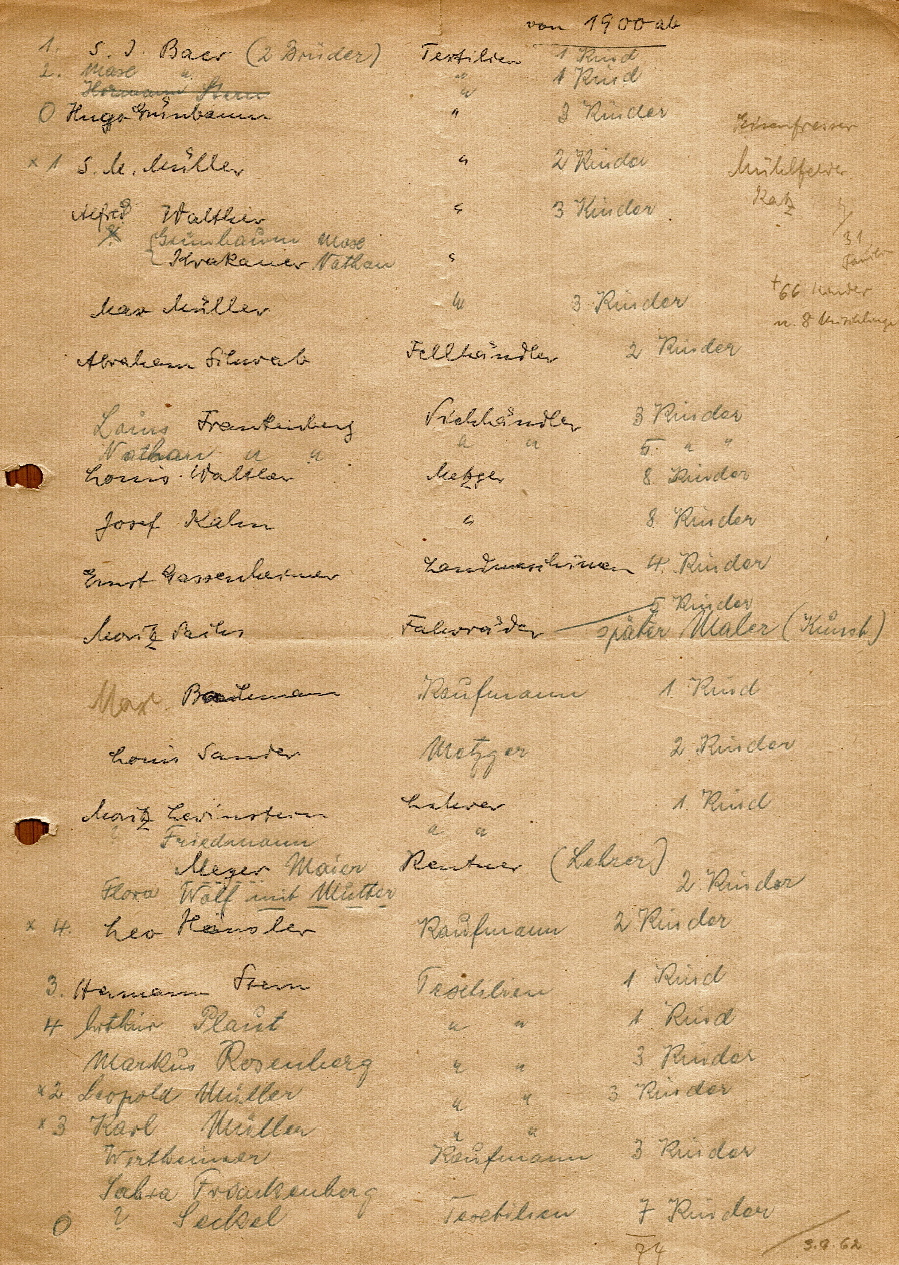 von 1900 ab
1. S. J. Baer (2 Brüder) Textilien 1 Kind
2. Max " " 1 Kind
Hermann Stern "
0 Hugo Grünbaum " 3 Kinder
x 1 S. M. Müller " 2 Kinder
Mühlfelder
Katz
Alfred Walther " 3 Kinder
Grünbaum Max
Krakauer Nathan "
31
+ 66 Kinder
Max Müller " 3 Kinder
u. 8 Mischlinge
Abraham Schwab Fellhändler 2 Kinder
Louis Frankenberg Viehhändler 3 Kinder
Nathan " " " " 5 " "
Louis Walther Metzger 8 Kinder
Josef Kahn " 8 Kinder
Ernst Gassenheimer Landmaschinen 4 Kinder
5 Kinder
Moritz Sachs Fahrräder später Maler (Kunst.)
Max Bachmann Kaufmann 1 Kind
Louis Sander Metzger 2 Kinder
Moritz Levinstein Lehrer 1 Kind
? Friedmann " "
Meyer Maier Rentner (Lehrer)
Flora Wolf mit Mutter 2 Kinder
x 4. Leo Hänsler Kaufmann 2 Kinder
3. Hermann Stern Textilien 1 Kind
4 Arthur Plaut " " 1 Kind
Markus Rosenberg " " 3 Kinder
x 2 Leopold Müller " " 3 Kinder
x 3 Karl Müller " "
Wertheimer Kaufmann 3 Kinder
Frankenberg
0 ? Seckel Textilien 7 Kinder
74
3.9.62